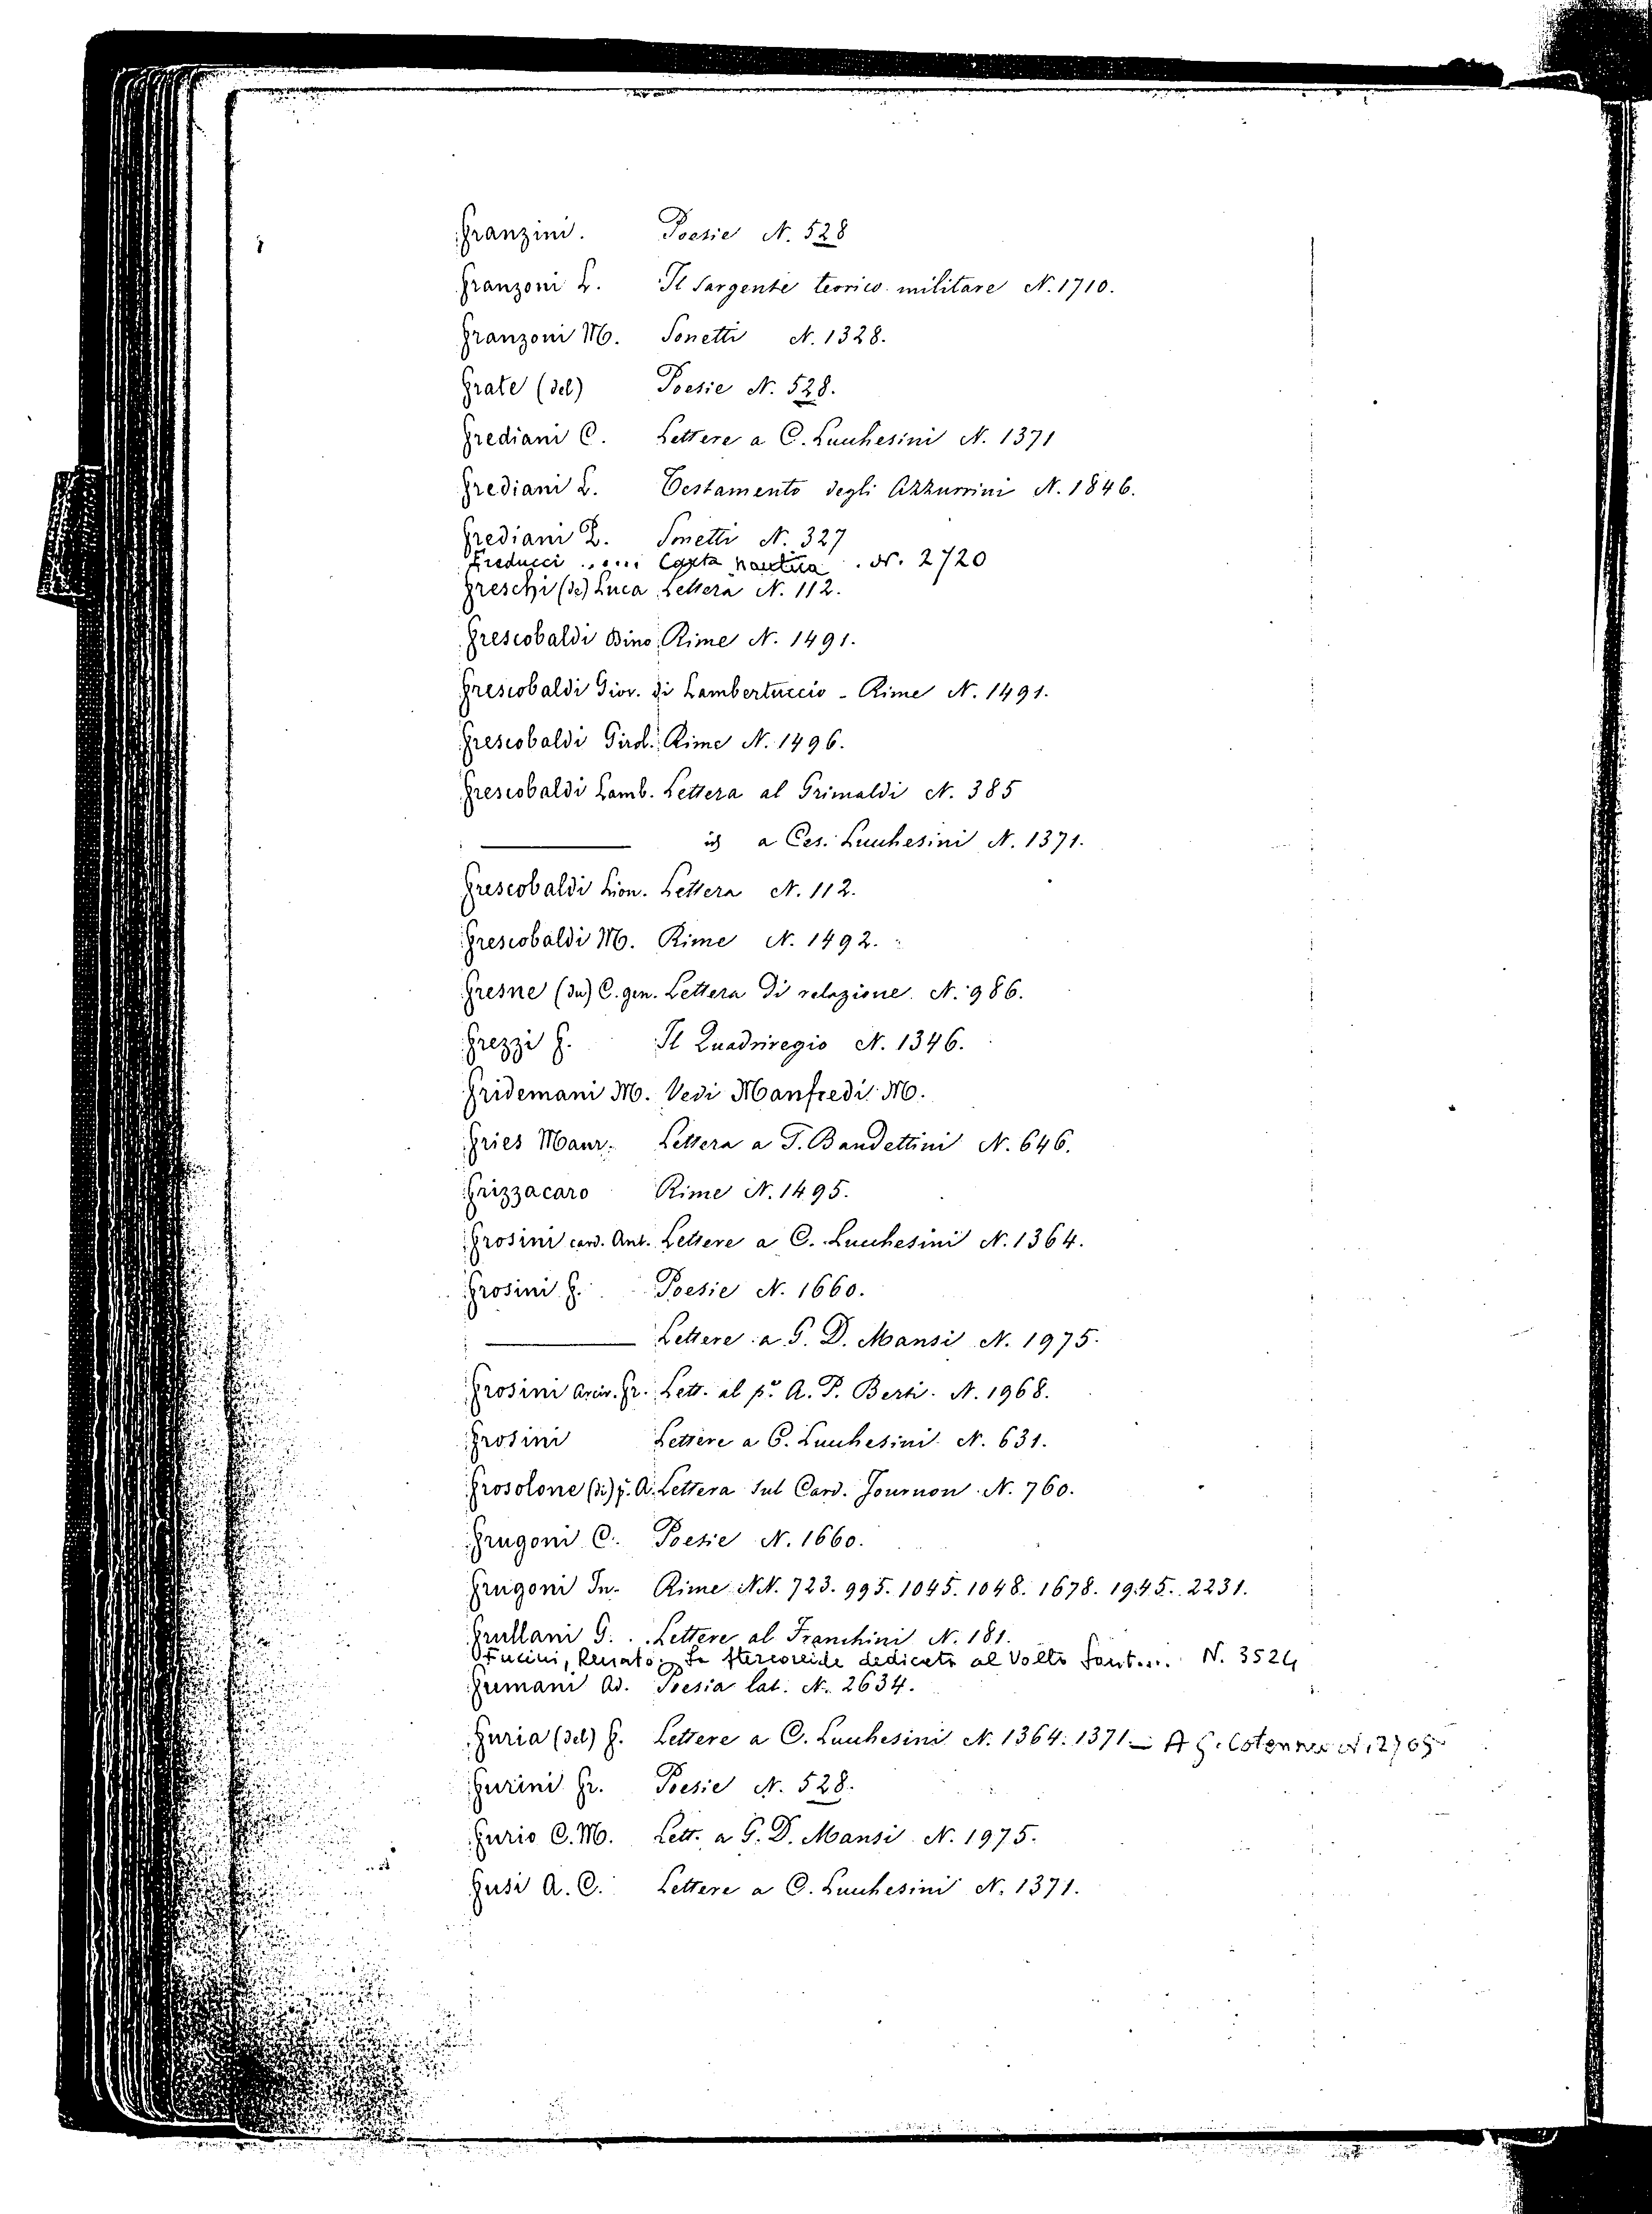 Franzini. Poesie N. 528
Franzoni L. Il sargente teorico militare N. 1710.
Franzoni M. Sonetti N. 1328.
Frate (del) Poesie N. 528.
Frediani C. Lettere a C. Lucchesini N. 1371
Frediani L. Testamento degli Azzurrini N. 1846.
Frediani Z. Sonetti N. 327
Freducci ..... Carta nautica . N. 2720
Freschi (de) Luca Lettera N. 112.
Frescobaldi Dino Rime N. 1491.
Frescobaldi Giov. di Lambertuccio - Rime N. 1491.
Frescobaldi Girol. Rime N. 1496.
Frescobaldi Lamb. Lettera al Grimaldi N. 385
id a Ces. Lucchesini N. 1371.
Frescobaldi Lion. Lettera N. 112.
Frescobaldi M. Rime N. 1492.
Fresne (du) C. gen. Lettera di relazione. N. 986.
Frezzi F. Il Quadriregio N. 1346.
Fridemani M. Vedi Manfredi M.
Fries Maur. Lettera a T. Bandettini N. 646.
Frizzacaro Rime N. 1495.
Frosini card. Ant. Lettere a C. Lucchesini N. 1364.
Frosini F. Poesie N. 1660.
Lettere a G. D. Mansi N. 1975.
Frosini Arciv. Fr. Lett. al p.e A. P. Berti. N. 1968.
Frosini Lettere a C. Lucchesini N. 631.
Frosolone (di) p. A. Lettera sul Card. Tournon N. 760.
Frugoni C. Poesie N. 1660.
Frugoni In. Rime NN. 723. 995. 1045. 1048. 1678. 1945. 2231.
Frullani G. Lettere al Franchini N. 181.
Fucini, Renato: La Stercoreide dedicata al Volto Sant.... N. 3524
Fumani Ad. Poesia lat. N. 2634.
Furia (del) F. Lettere a C. Lucchesini N. 1364. 1371 - A G.
Furini Fr. Poesie N. 528.
Furio C. M. Lett. a G. D. Mansi N. 1975.
Fusi A. C. Lettere a C. Lucchesini N. 1371.